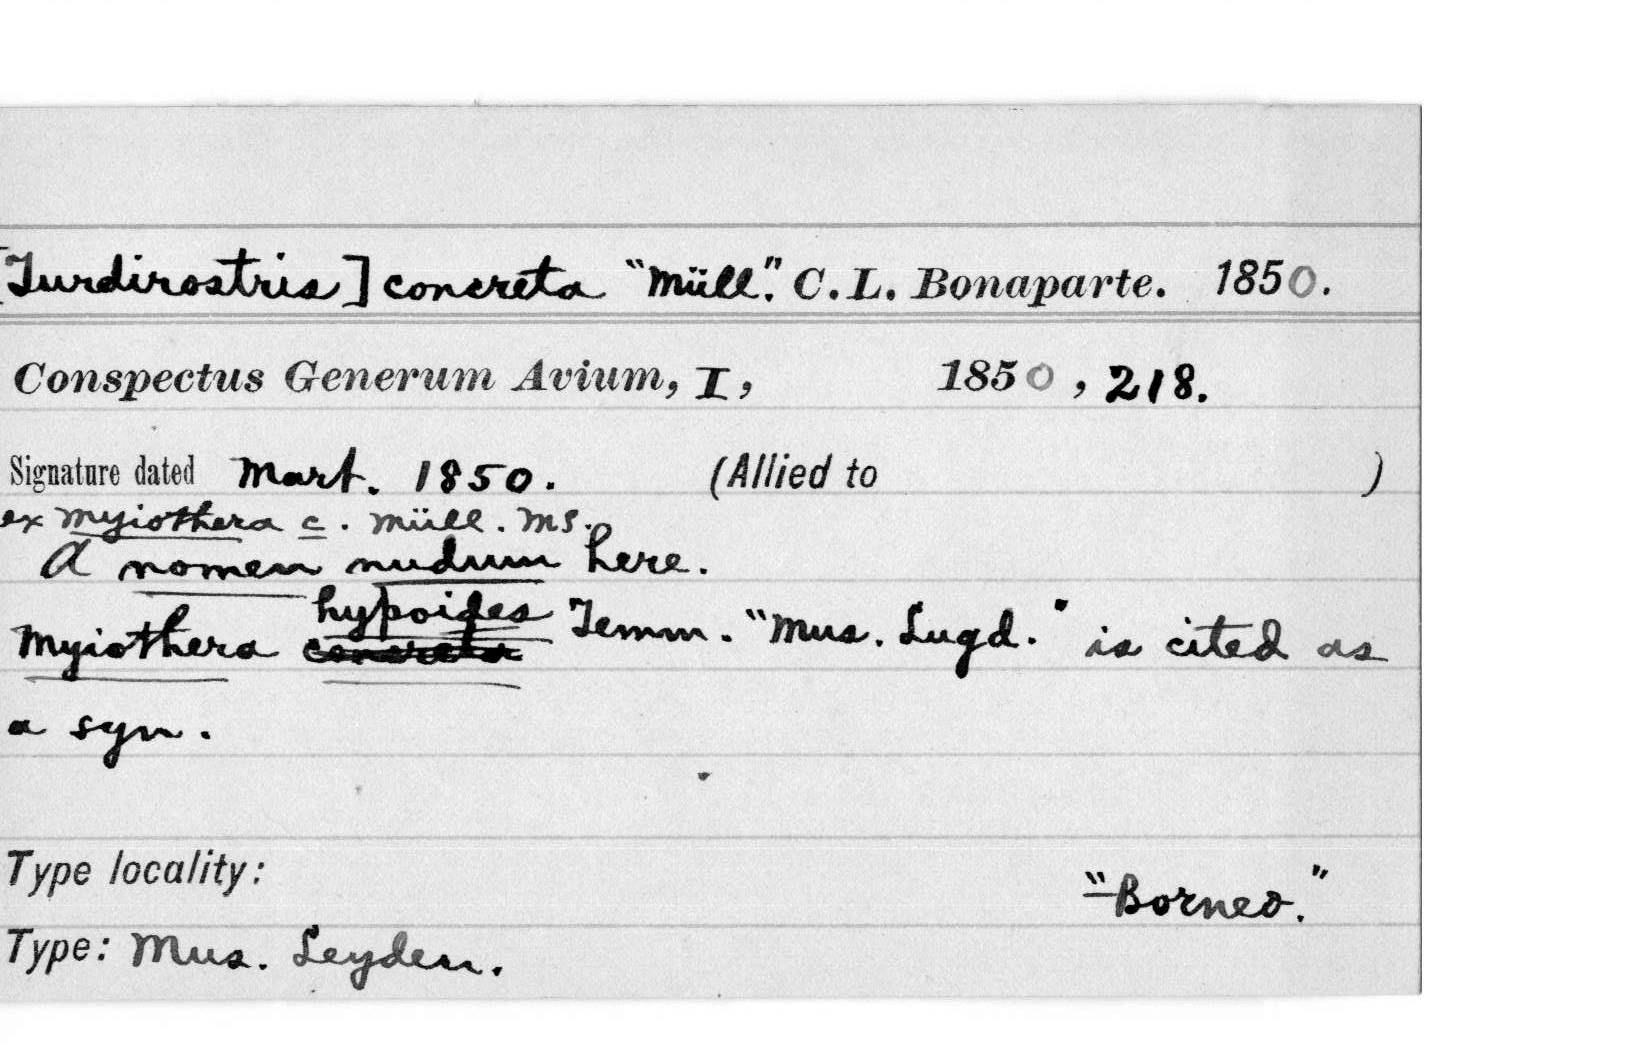 [Turdirostris] concreta "Müll." C. L. Bonaparte. 1850.
Conspectus Generum Avium, I, 1850, 218.
Signature dated Mart. 1850. (Allied to )
ex Myiothera c. Müll. MS.
A nomen nudum here.
hypoides
Myiothera concreta Temm. "Mus. Lugd." is cited as
a syn.
Type locality: "Borneo."
Type: Mus. Leyden.